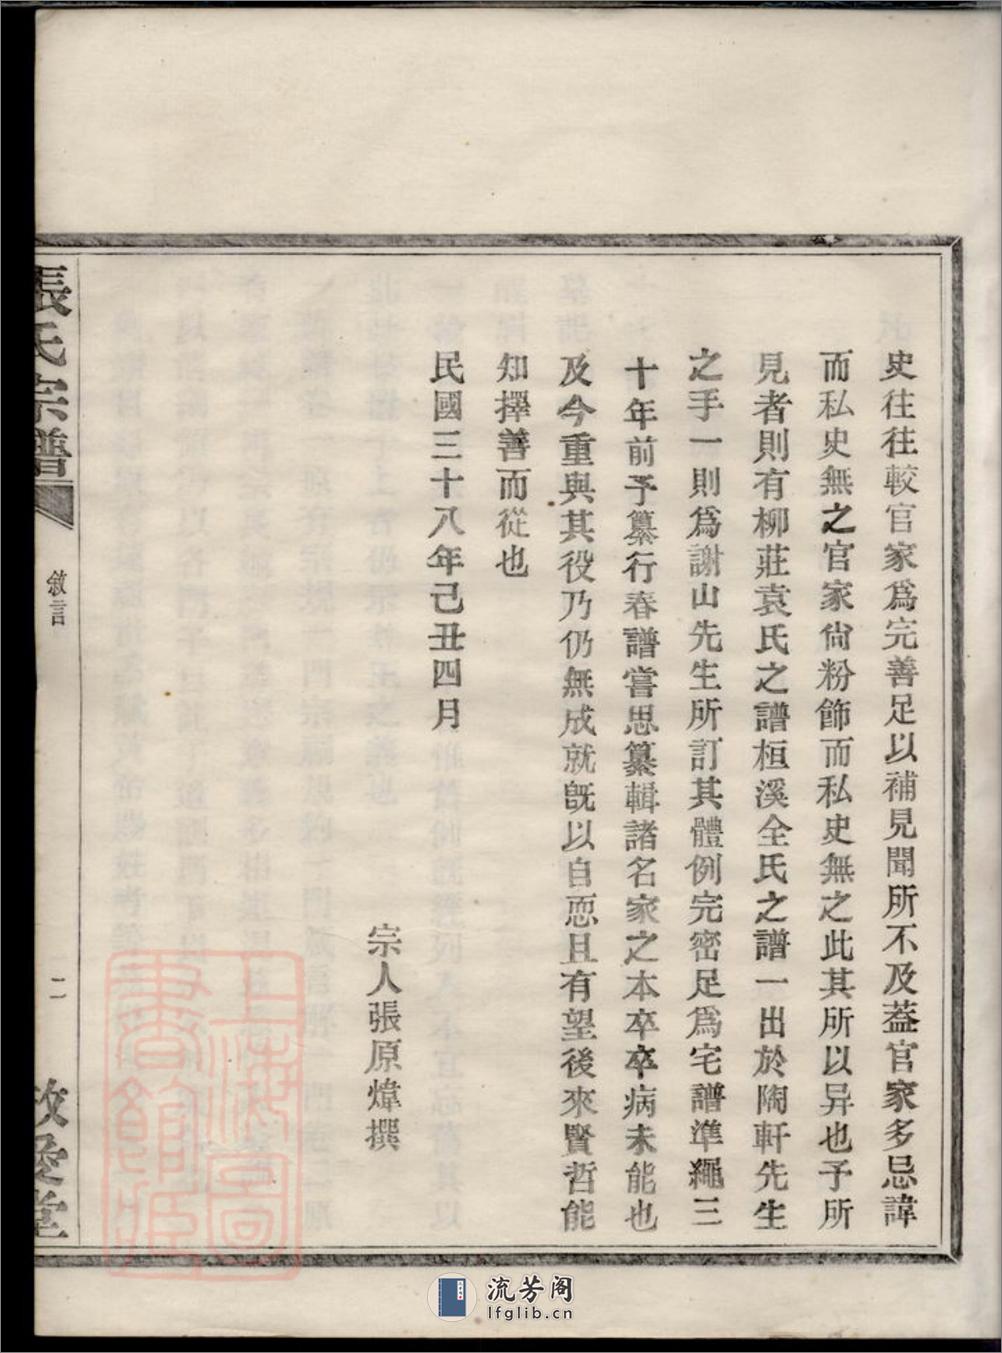 史往往較官家爲完善足以補見聞所不及葢官家多忌諱
而私史無之官家尙粉飾而私史無之此其所以异也予所
見者則有柳莊袁氏之譜桓溪全氏之譜一出於陶軒先生
之手一則爲謝山先生所訂其體例完密足爲宅譜準繩三
十年前予纂行春譜嘗思纂輯諸名家之本卒卒病未能也
及今重與其役乃仍無成就旣以自恧且有望後來賢哲能
知擇善而從也
民國三十八年己丑四月
宗人張原煒撰
張氏宗譜
敘言
二
敬愛堂
上海圖書館藏
流芳阁
lfglib.cn